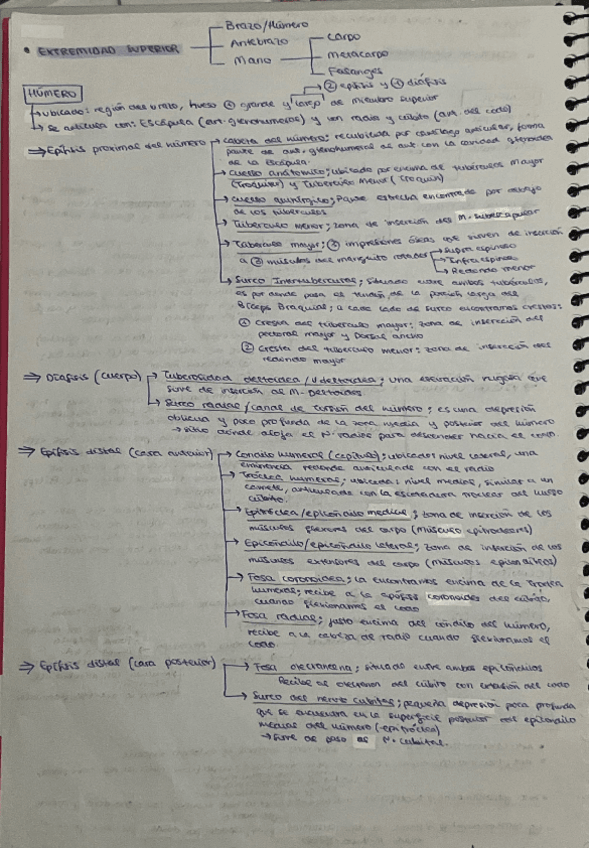 Brazo/Húmero
• EXTREMIDAD SUPERIOR
Antebrazo
Mano
Carpo
Metacarpo
Falanges
HÚMERO
② epífisis y ① diáfisis
Ubicado: región del brazo, hueso ① grande y largo de miembro superior
Se articula con: Escápula (art. glenohumeral) y con radio y cúbito (art. del codo)
⇒ Epífisis proximal del húmero → Cabeza del húmero: recubierta por cartílago articular, forma
parte de art. glenohumeral al art. con la cavidad glenoidea
de la Escápula.
→ Cuello anatómico; ubicado por encima de tubérculo Mayor
(Troquiter) y Tubérculo Menor (Troquin)
→ Cuello quirúrgico; Parte estrecha encontrada por debajo
de los tubérculos
→ Tubérculo menor; zona de inserción del M. Subescapular
→ Tubérculo mayor; ③ impresiones óseas que sirven de inserción
a ③ músculos del manguito rotador
Supra espinoso
Infraespinoso
Redondo menor
→ Surco Intertubercular; Situado entre ambos tubérculos,
es por donde pasa el tendón de la porción larga del
Bíceps Braquial; a cada lado de surco encontramos crestas:
① Cresta del tubérculo mayor; zona de inserción del
pectoral mayor y dorsal ancho
② Cresta del tubérculo menor; zona de inserción del
redondo mayor
⇒ Diáfisis (cuerpo) → Tuberosidad deltoidea / V deltoidea; una elevación rugosa que
sirve de inserción al M. Deltoides
→ Surco radial / canal de torsión del húmero; es una depresión
oblicua y poco profunda de la zona media y posterior del húmero
→ sitio donde aloja el N. radial para descender hacia el codo.
⇒ Epífisis distal (cara anterior) → Cóndilo humeral (capítulo); ubicado: nivel lateral, una
eminencia redonda articulada con el radio
→ Tróclea humeral; ubicada: nivel medial, similar a un
carrete, articulada con la escotadura troclear del hueso
cúbito.
→ Epitróclea / epicóndilo medial; zona de inserción de los
músculos flexores del carpo (músculo epitrocleares)
→ Epicóndilo / epicóndilo lateral; zona de inserción de los
músculos extensores del carpo (músculos epicondíleos)
→ Fosa coronoidea; la encontramos encima de la tróclea
humeral; recibe a la apófisis coronoides del cúbito,
cuando flexionamos el codo
→ Fosa radial; justo encima del cóndilo del húmero,
recibe a la cabeza de radio cuando flexionamos el
codo.
⇒ Epífisis distal (cara posterior) → Fosa olecraneana; situada entre ambos epicóndilos
Recibe al olécranon del cúbito con extensión del codo
→ Surco del nervio cubital; pequeña depresión poco profunda
que se encuentra en la superficie posterior del epicóndilo
medial del húmero (epitróclea)
→ Sirve de paso al N. Cubital.